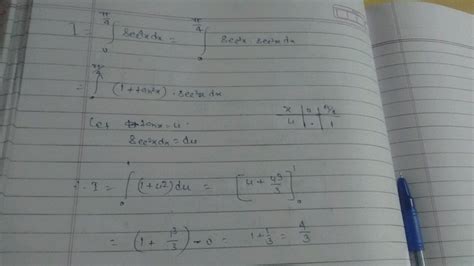 I = ∫₀^{π/4} sec⁴x dx = ∫₀^{π/4} sec²x sec²x dx
= ∫₀^{π/4} (1+tan²x) · sec²x dx
Let tanx = u
x | 0 | π/4
sec²x dx = du
u | 0 | 1
∴ I = ∫₀¹ (1+u²) du = [u + u³/3]₀¹
= (1 + 1³/3) - 0 = 1 + 1/3 = 4/3